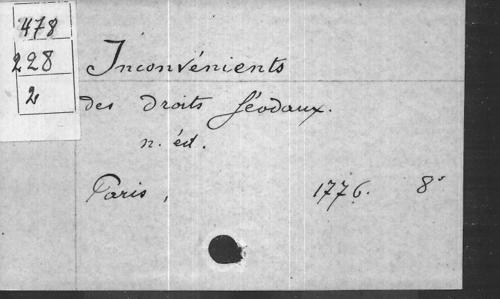 478
228
2
Inconvénients
des droits féodaux.
n. éd.
Paris, 1776. 8°